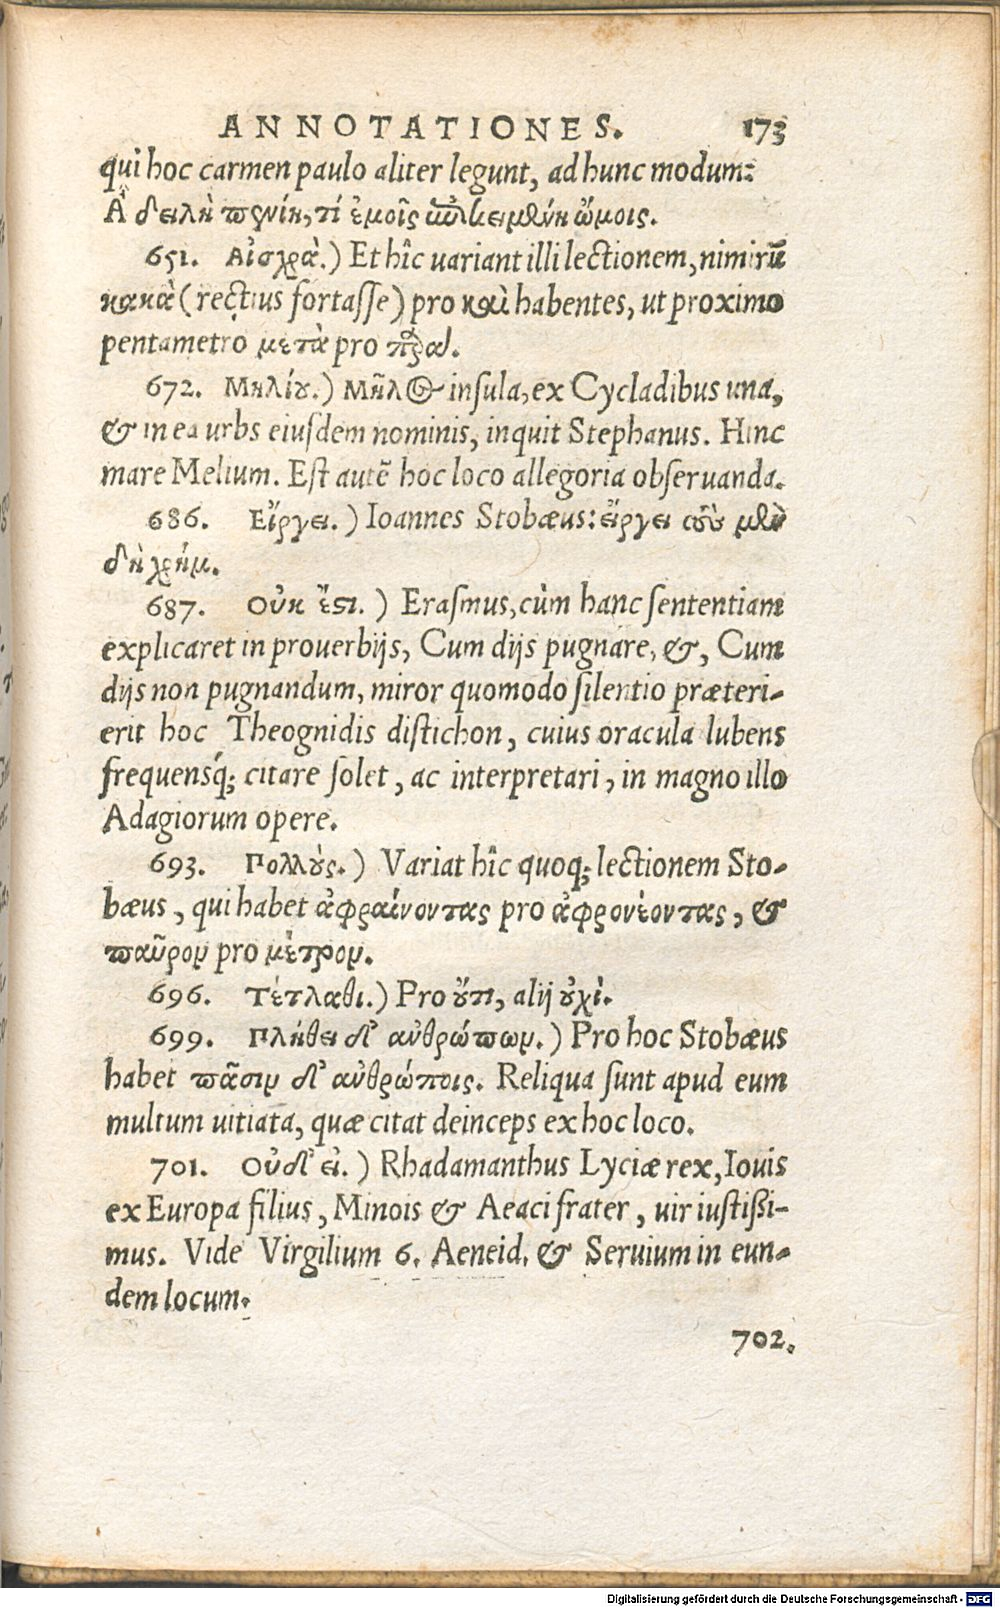 ANNOTATIONES. 173
qui hoc carmen paulo aliter legunt, ad hunc modum:
Ἆ δειλὴ πενίη, τί ἐμοῖς ἐπικειμένη ὤμοις.
651. Αἰσχρὰ.) Et hîc uariant illi lectionem, nimirū
κακὰ (rectius fortasse) pro καὶ habentes, ut proximo
pentametro μετὰ pro
672. Μηλίου.) Μῆλος insula, ex Cycladibus una,
& in ea urbs eiusdem nominis, inquit Stephanus. Hinc
mare Melium. Est autē hoc loco allegoria obseruanda.
686. Εἴργει.) Ioannes Stobæus: εἴργει σὺν μὲν
δὴ χρήμ.
687. Οὐκ ἔστι.) Erasmus, cùm hanc sententiam
explicaret in prouerbijs, Cum dijs pugnare, &, Cum
dijs non pugnandum, miror quomodo silentio præteri-
erit hoc Theognidis distichon, cuius oracula lubens
frequensq́; citare solet, ac interpretari, in magno illo
Adagiorum opere.
693. Πολλοὺς.) Variat hîc quoq; lectionem Sto-
bæus, qui habet ἀφραίνοντας pro ἀφρονέοντας, &
παῦρον pro μέτρον.
696. Τέτλαθι.) Pro οὔτι, alij οὐχί.
699. Πλήθει δ' ἀνθρώπων.) Pro hoc Stobæus
habet πᾶσιν δ' ἀνθρώποις. Reliqua sunt apud eum
multum uitiata, quæ citat deinceps ex hoc loco.
701. Οὐδ' εἰ.) Rhadamanthus Lyciæ rex, Iouis
ex Europa filius, Minois & Aeaci frater, uir iustißi-
mus. Vide Virgilium 6. Aeneid. & Seruium in eun-
dem locum.
702.
Digitalisierung gefördert durch die Deutsche Forschungsgemeinschaft - DFG